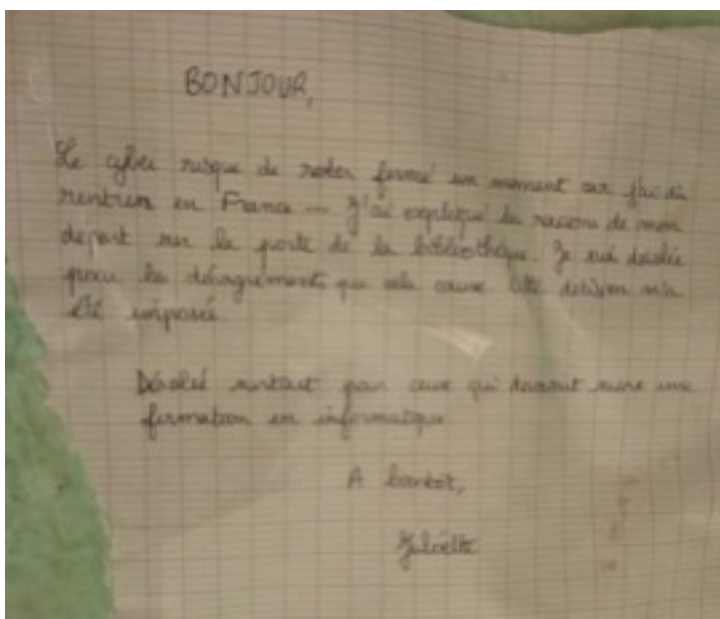 BONJOUR,
Le cyber risque de rester fermé un moment car j'ai dû
rentrer en France... J'ai expliqué les raisons de mon
départ sur la porte de la bibliothèque. Je suis désolée
pour les désagréments que cela cause. Cette décision m'a
été imposée.
Désolée surtout pour ceux qui devaient suivre une
formation en informatique
A bientôt,